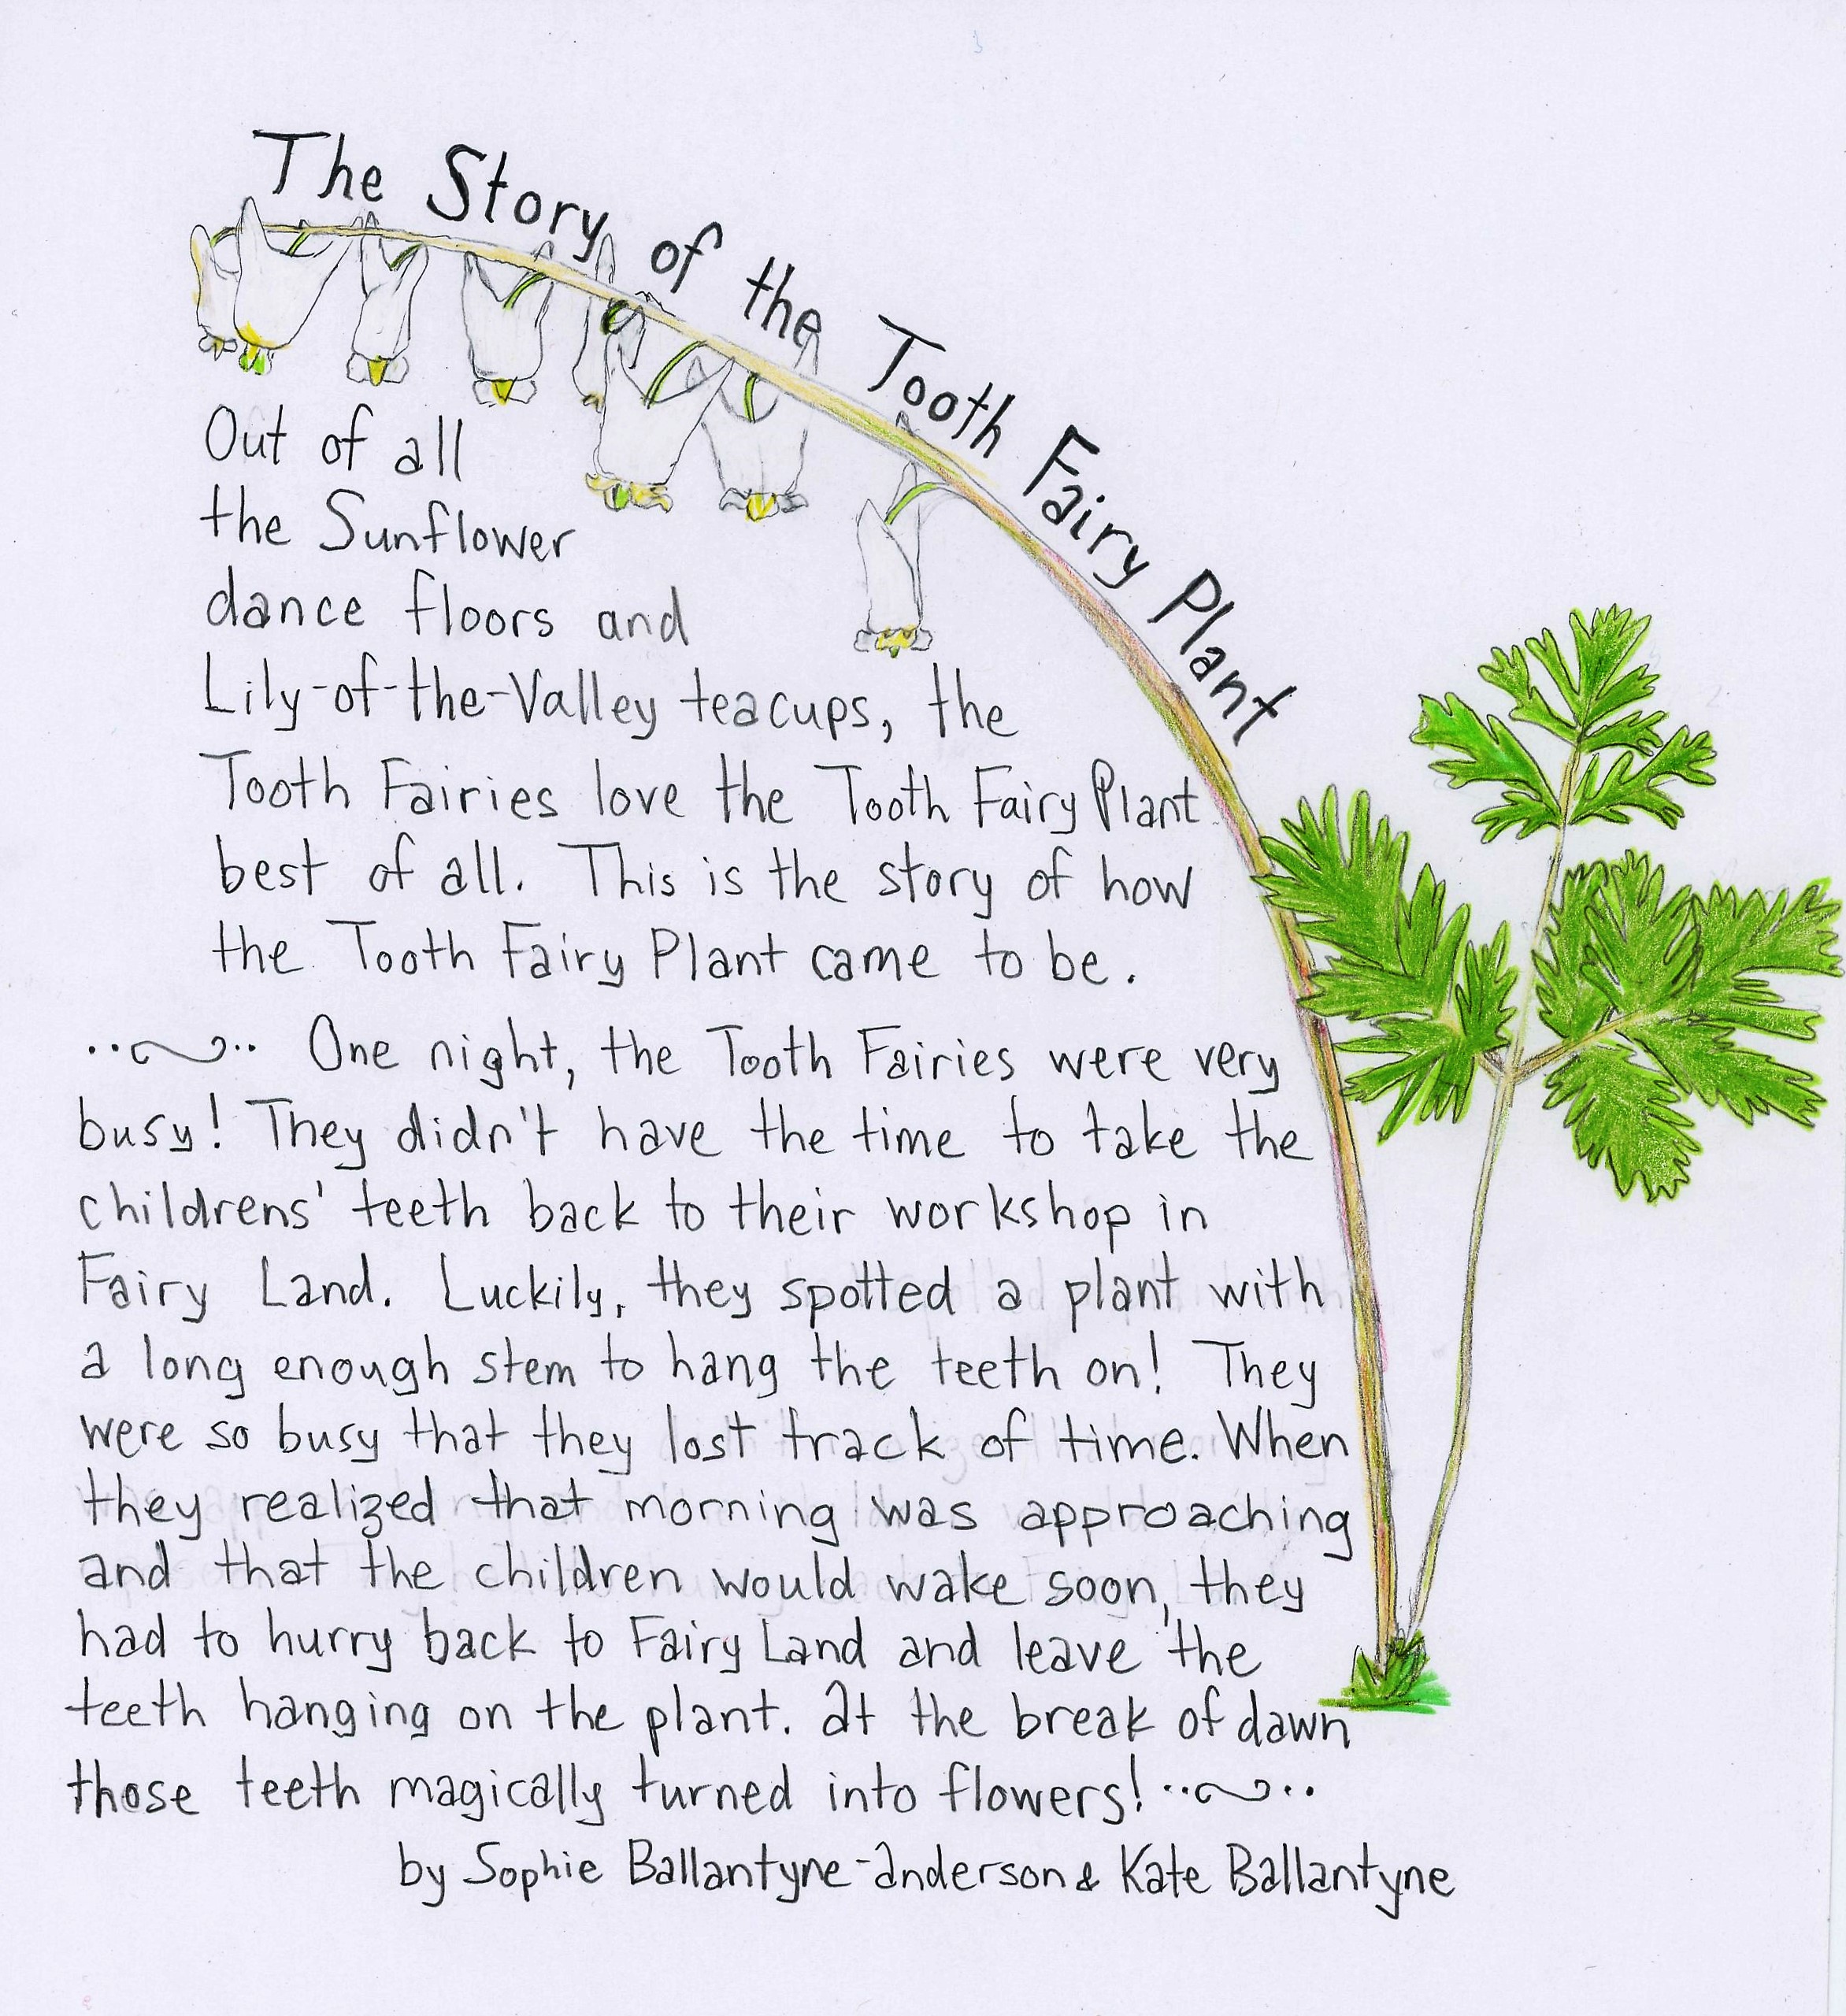 The Story of the Tooth Fairy Plant
Out of all
the Sunflower
dance floors and
Lily-of-the-Valley teacups, the
Tooth Fairies love the Tooth Fairy Plant
best of all. This is the story of how
the Tooth Fairy Plant came to be.
One night, the Tooth Fairies were very
busy! They didn't have the time to take the
childrens' teeth back to their workshop in
Fairy Land. Luckily, they spotted a plant with
a long enough stem to hang the teeth on! They
were so busy that they lost track of time. When
they realized that morning was approaching
and that the children would wake soon, they
had to hurry back to Fairy Land and leave the
teeth hanging on the plant. At the break of dawn
those teeth magically turned into flowers!
by Sophie Ballantyne-Anderson & Kate Ballantyne